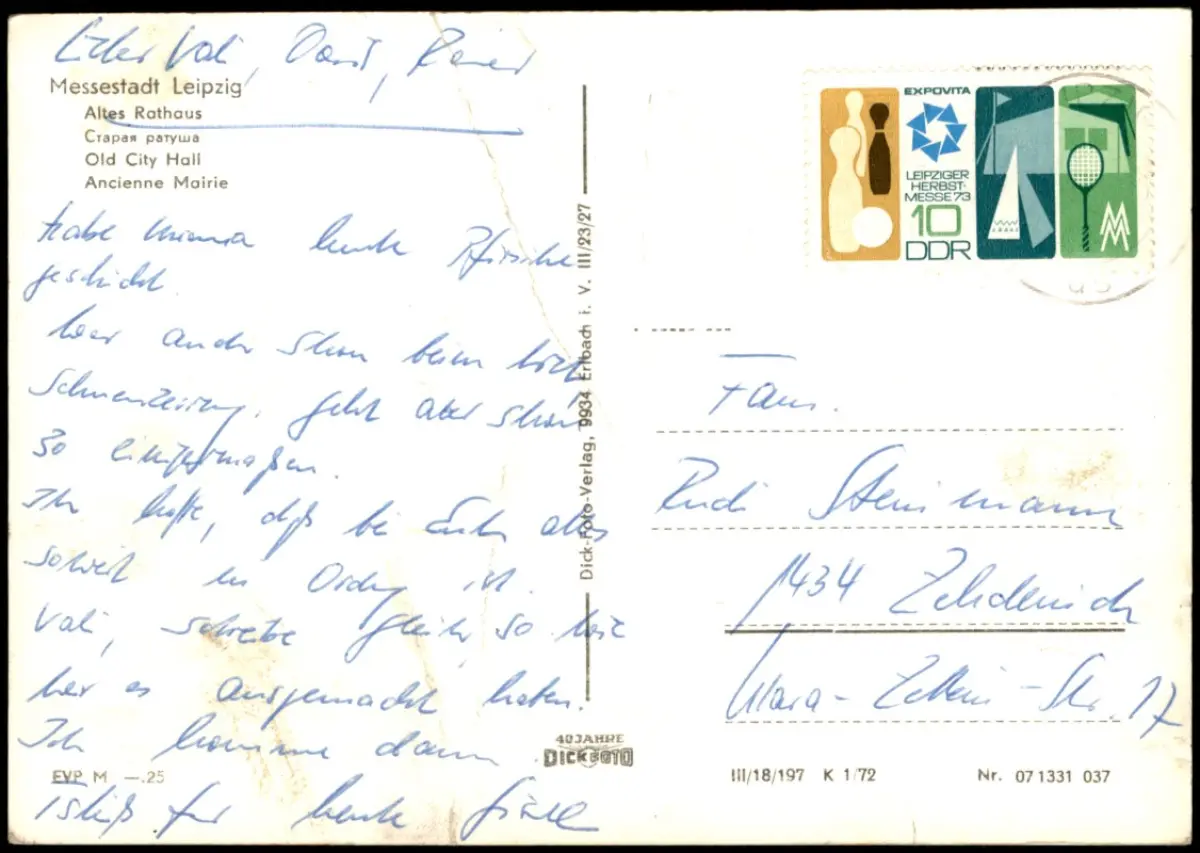 Lieber Vati, Gerit, Rainer
Messestadt Leipzig
Altes Rathaus
Старая ратуша
Old City Hall
Ancienne Mairie
Habe heute Pfirsiche
geschickt.
War auch schon beim
geht aber schon
so einigermaßen.
Ich hoffe, daß bei Euch alles
soweit in Ordng ist.
Vati, schreibe gleich, so wie
wir es ausgemacht haben.
Ich komme dann.
für heute
EVP M —.25
Dick-Foto-Verlag, 9934 Erlbach i. V. III/23/27
40 JAHRE
DICK FOTO
EXPOVITA
LEIPZIGER
HERBST-
MESSE 73
10
DDR
MM
Fam.
Rudi Steinmann
1434 Zehdenick
Clara-Zetkin-Str. 17
III/18/197 K 1/72
Nr. 07 1331 037